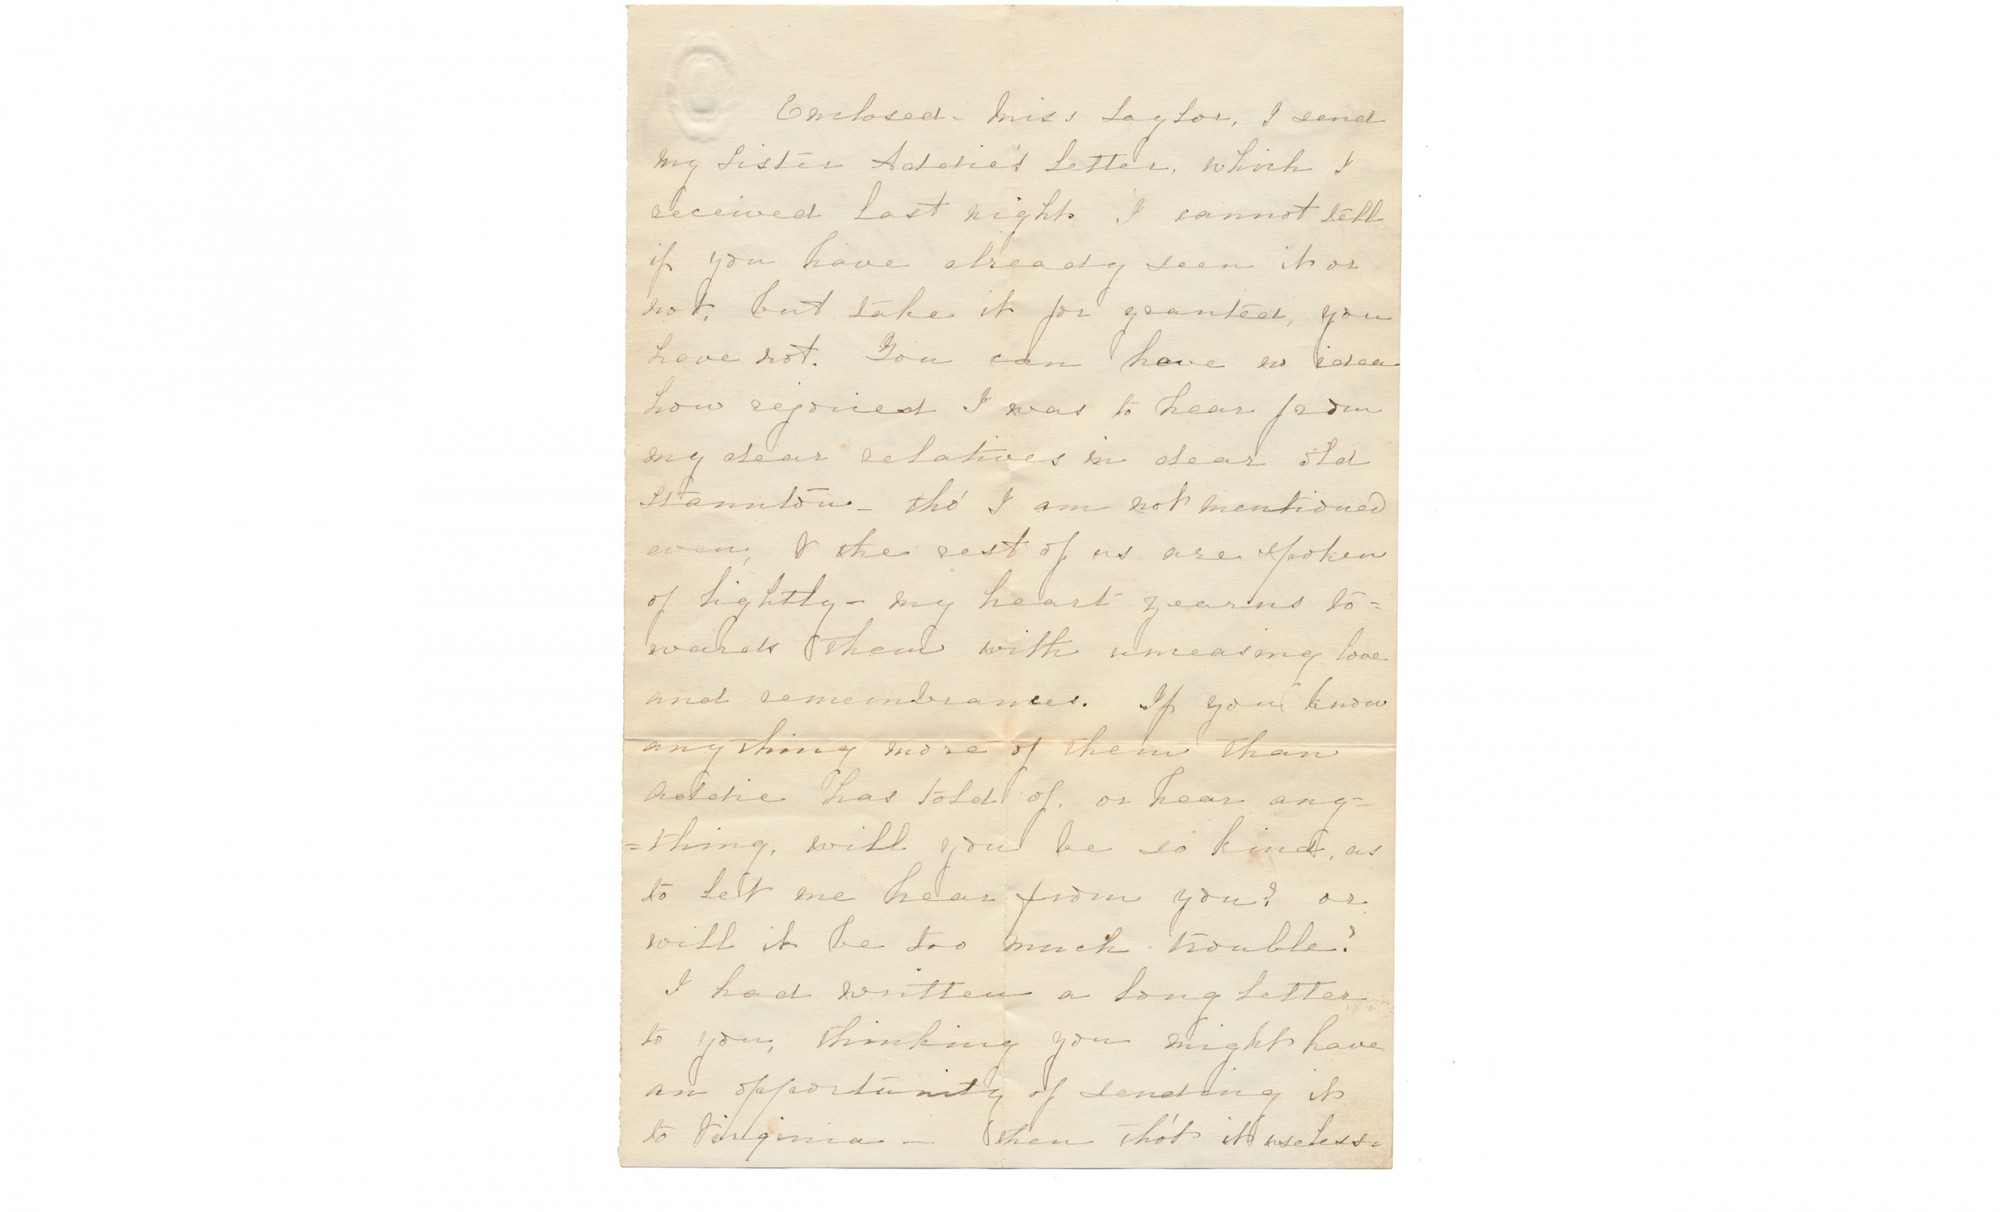 Enclosed - Miss Taylor, I send
my sister Addie's letter, which I
received last night. I cannot tell
if you have already seen it or
not, but take it for granted, you
have not. You can have no idea
how rejoiced I was to hear from
my dear relatives in dear old
Staunton - tho' I am not mentioned
even, & the rest of us are spoken
of lightly - my heart yearns to=
wards them with unceasing love
and remembrances. If you know
anything more of them than
Addie has told of, or hear any=
=thing, will you be so kind, as
to let me hear from you? or
will it be too much trouble?
I had written a long letter
to you, thinking you might have
an opportunity of sending it
to Virginia - then tho't it useless.